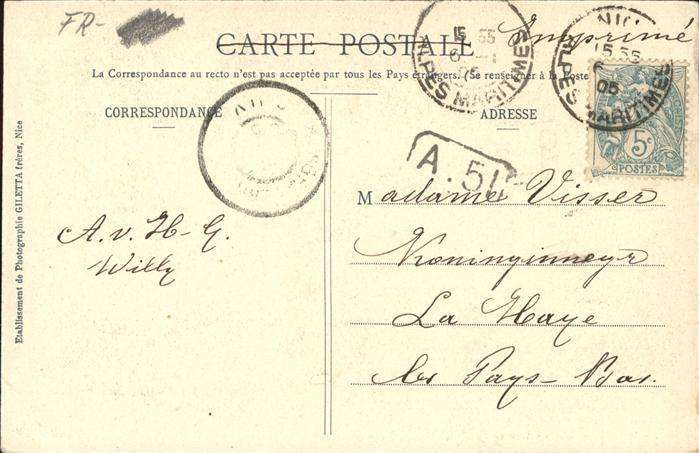 FR-
Imprimé
CARTE POSTALE
La Correspondance au recto n'est pas acceptée par tous les Pays étrangers. (Se renseigner à la Poste
CORRESPONDANCE
ADRESSE
NICE
15 55
6
05
ALPES MARITIMES
15 55
6
05
ALPES MARITIMES
5c
POSTES
A.51
Madame Visser
Koninginnegr
La Haye
les Pays-Bas.
A. v. H-G.
Willy
Etablissement de Photographie GILETTA frères, Nice